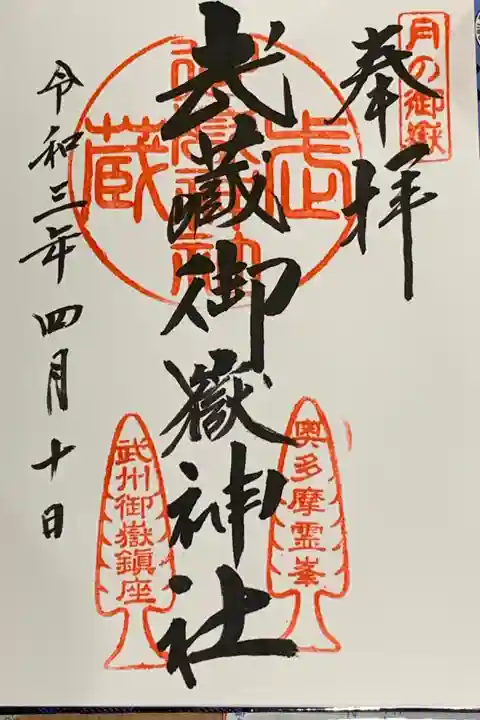 月の御嶽
奉拝
武蔵御嶽神社
奥多摩霊峯
武州御嶽鎮座
令和三年四月十日